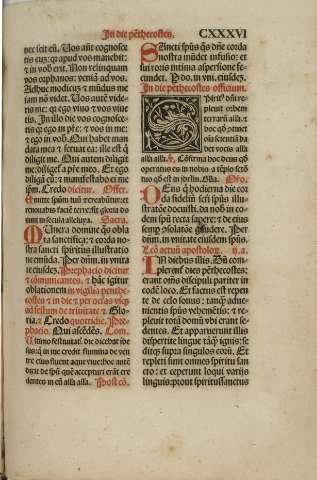 In die pēthecostes.
CXXXVI
nec scit eū. Vos aūt cognosce
tis eum: qr apud vos manebit:
⁊ in vobꝭ erit. Non relinquam
vos orphanos: veniā ad vos.
Adhuc modicuz ⁊ mūdus me
iam nō videt. Vos autē vide-
tis me: qr ego viuo ⁊ vos viue
tis. In illo die vos cognosce-
tis qr ego in p̄re: ⁊ vos in me:
⁊ ego in vobꝭ. Qui habet man
data mea ⁊ seruat ea: ille est q̇
diligit me. Qui autem diligit
me: diliget̄ a p̄re meo. Et ego
diligā eum: ⁊ manifestabo ei me
ip̄m. Credo dicitur. Offer.
Emitte spm̄ tuū ⁊ creabūtur: ⁊
renouabis faciē terre: sit gloria do
mini in secula alleluya. Sacra.
Munera domine q̄s obla
ta sanctifica: ⁊ corda no-
stra sancti spiritus illustratio
ne emūda. Per dn̄m. in vnita
te eiusdez. Prephacio dicitur
⁊ cōmunicantes. ⁊ hāc igitur
oblationem in vigilia penthe
costes ⁊ in die ⁊ per octās vsqz
ad festum de trinitate ⁊ Glo-
ria. ⁊ Credo quotidie. Pre-
phacio. Qui ascēdēs. Com.
Vltimo festiuitatꝭ. die dicebat ihe
sus: q̇ in me credit flumina de ven
tre eius fluent aque viue: hoc autē
dixit de spū quē accepturi erāt cre
dentes in eū alla alla. Postcō.
Sancti spūs q̄s dn̄e corda
nostra mūdet infusio: et
sui roris intima aspersione fe
cundet. P do. in vni. eiusdez.
In die pethecostes officium.
Spiritꝰ dn̄i re-
pleuit orbem
terrarū alla. ⁊
hoc qd ꝯtinet
oīa scientiā hꝫ
bet vocis alla
alla alla. ps. Cōfirma hoc deus qd
operatus es in nobis a tēplo scto
tuo qd est in hrlm̄. Gla. Oro.
Deus q̇ hodierna die cor
da fidelīū scī spūs illu-
stratōe docuisti. da nobꝭ in eo-
dem spū recta sapere: ⁊ de eius
semp ꝯsolatōe gaudere. Per
dn̄m. in vnitate eiusdem spūs.
Leō actuū apostolorꝫ. ij. a.
In diebus illis. Dū com-
plerent̄ dies pēthecostes:
erant oēs discipuli pariter in
eodē loco. Et factus est repen
te de celo sonus: tanq̄ adue-
nientis spūs vehemētis: ⁊ re-
pleuit totā domū vbi erant se-
dentes. Et apparuerunt illis
dispertite lingue tāq̄ ignis: se
ditqz supra singulos eorū. Et
repleti sunt omnes spiritu san
cto: et ceperunt loqui varijs
linguis: prout spiritussanctus